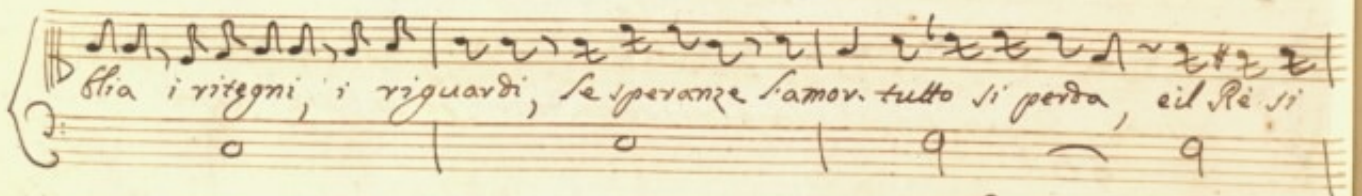 blia i ritegni, i riguardi, le speranze l'amor. tutto si perda, e il Rè si